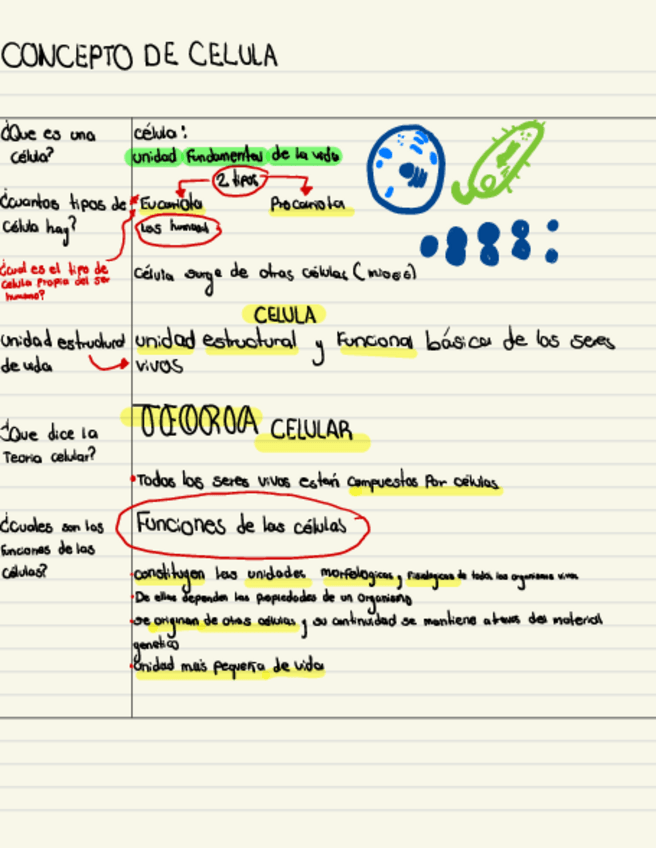 CONCEPTO DE CELULA
¿Que es una
célula?
célula:
unidad fundamental de la vida
2 tipos
¿cuantos tipos de
célula hay?
Eucariota
Procariota
Los humanos
¿cual es el tipo de
celula propia del ser
humano?
Célula surge de otras células (mitosis)
CELULA
unidad estructural
de vida
unidad estructural y funcional básica de los seres
vivos
¿Que dice la
Teoria celular?
TEORIA CELULAR
Todos los seres vivos están compuestos por células
¿cuales son las
funciones de las
células?
Funciones de las células
constituyen las unidades morfologicas y fisiologicas de todos los organismos vivos
De ellas dependen las propiedades de un organismo
se originan de otras células y su continuidad se mantiene a traves del material
genetico
Unidad más pequeña de vida